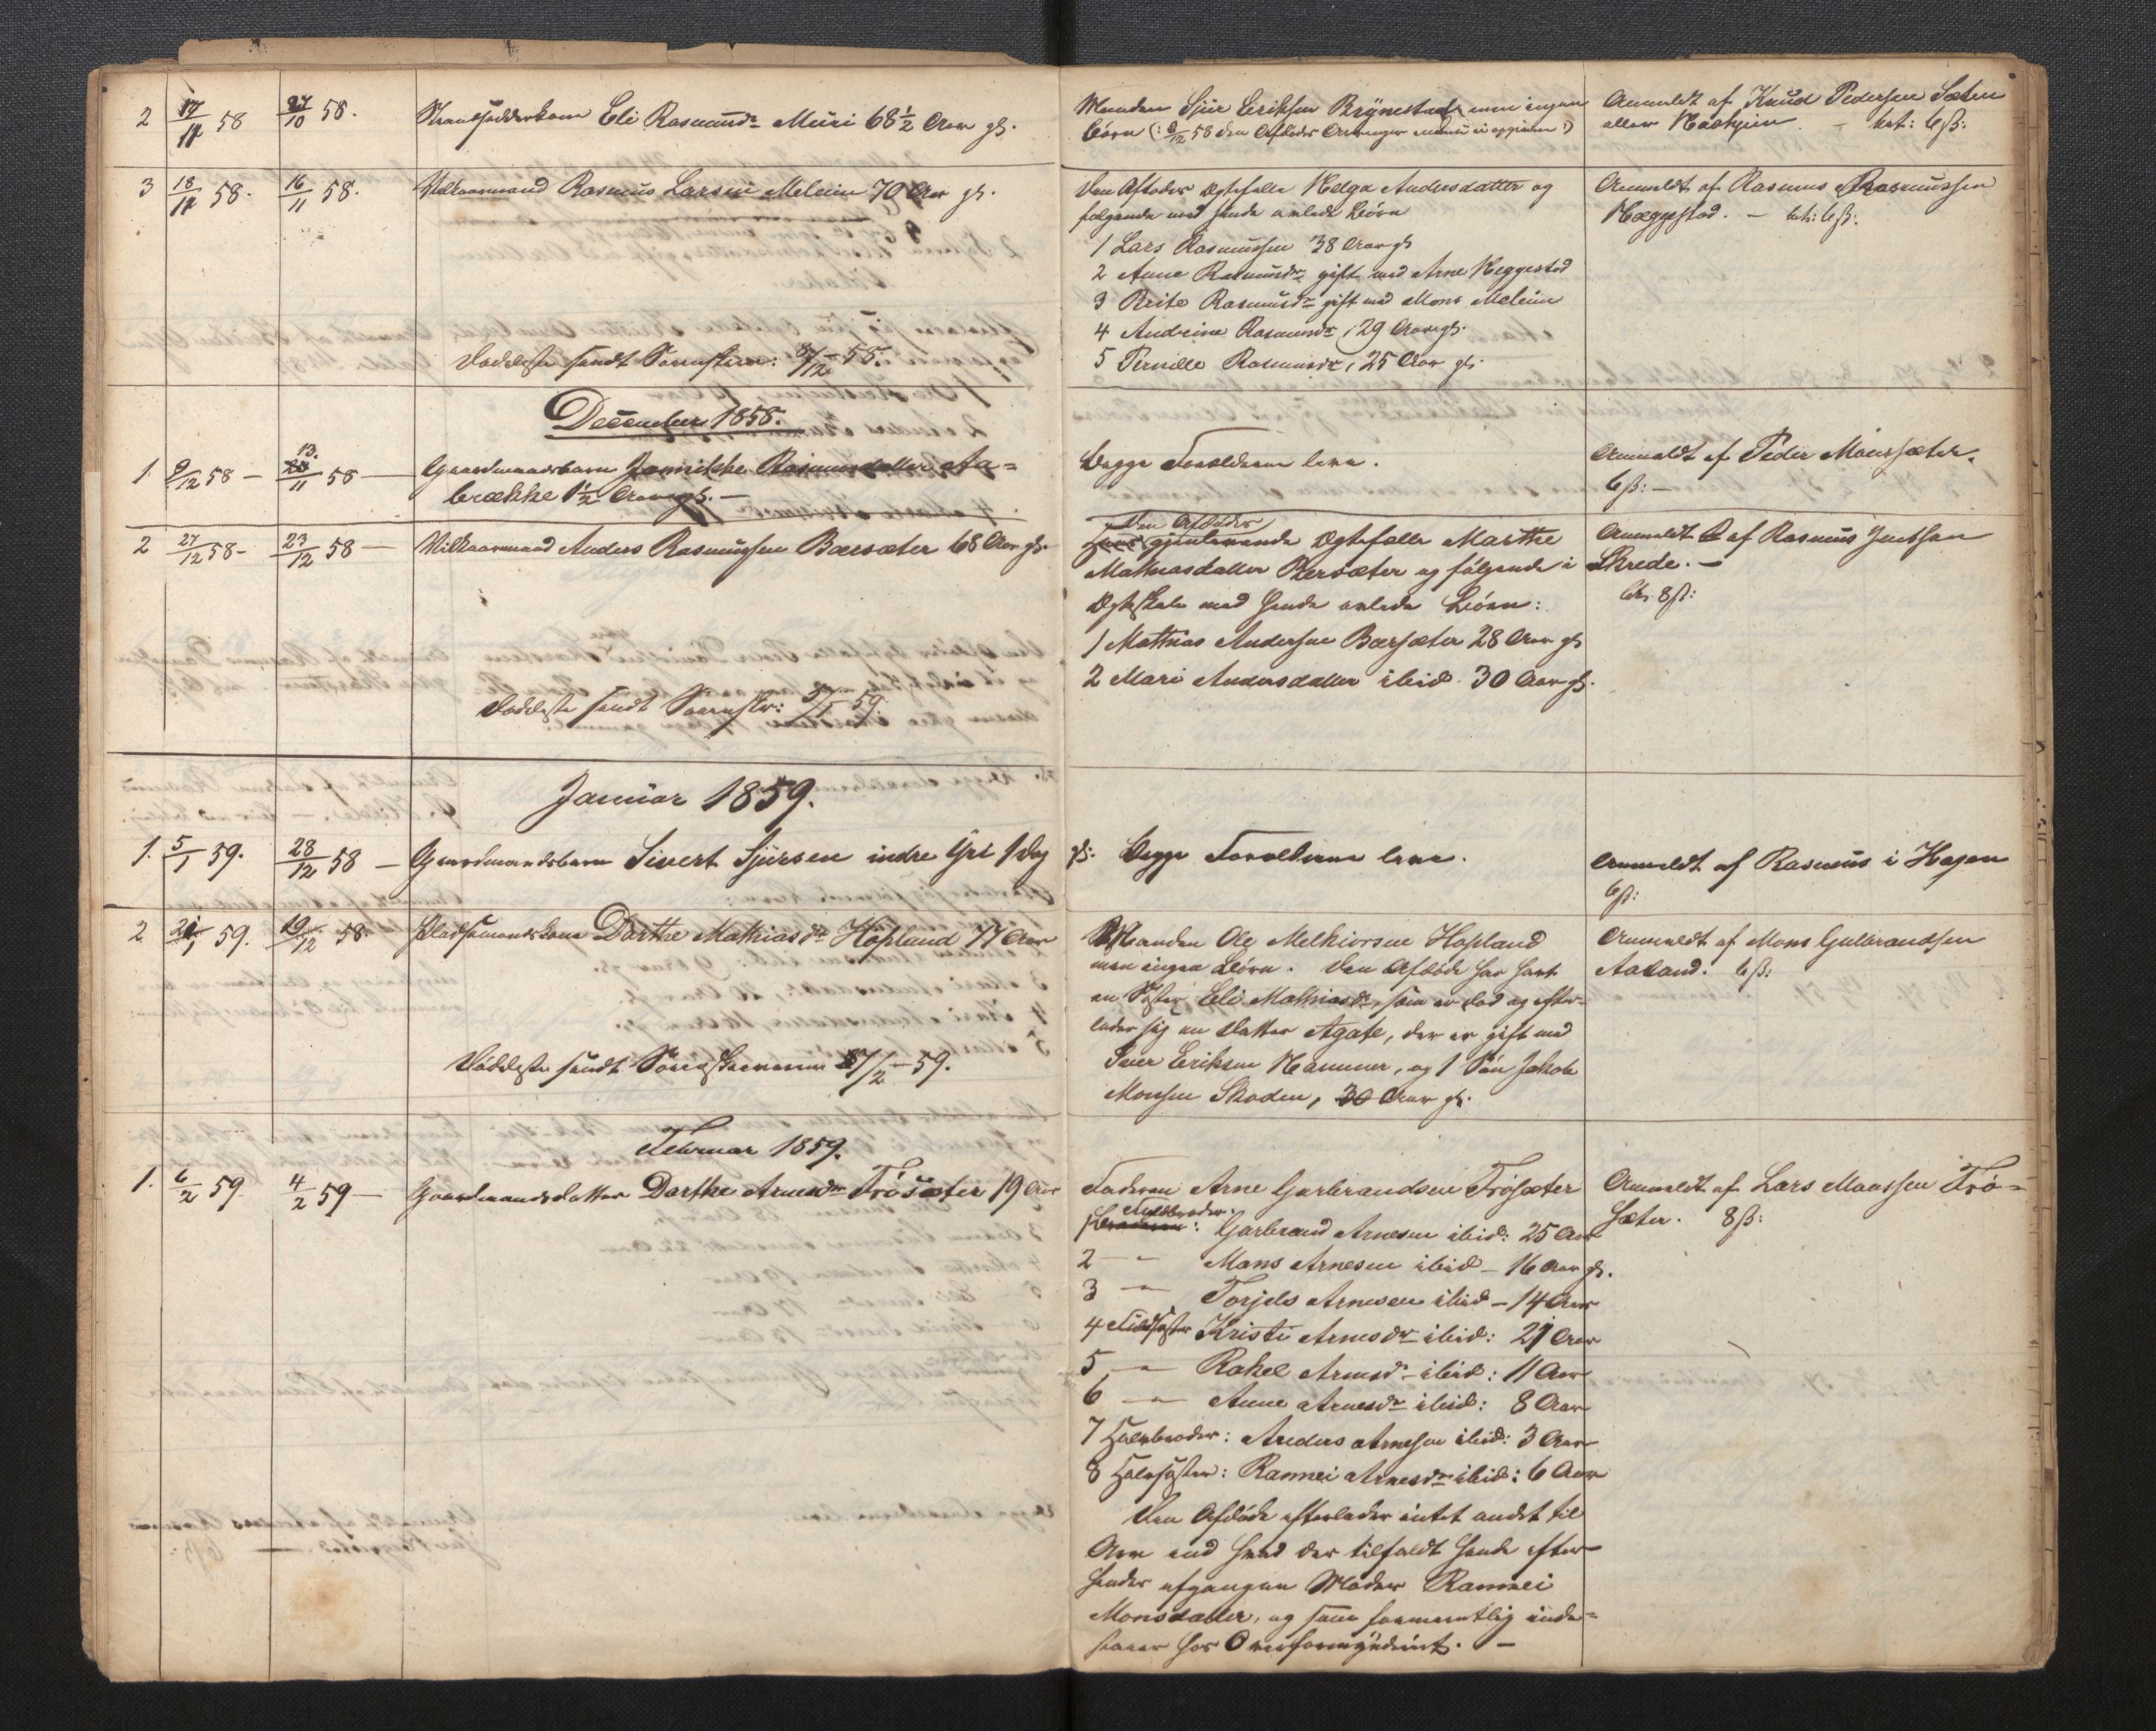 2 17/11 58 27/10 58. Strandsidderkone Eli Rasmusdr Muri 68 1/2 Aar gl.
Manden Sjur Eriksen Brynestad, men ingen
Børn (: 9/12 58 den Afdødes Arvinger
Anmeldt af Knud Pedersen Sæten
eller bet: 6 ß:
3 18/11 58. 16/11 58. Vilkaarmand Rasmus Larsen Meleim 70 Aar gl.
Den Afdødes Ægtefælle Helga Andersdatter og
følgende med hende avlede Børn
1 Lars Rasmussen 38 Aar gl
2 Anne Rasmusdr gift med Arne Heggestad
3 Brite Rasmusdr gift med Mons Meleim
4 Andrine Rasmusdr, 29 Aar gl.
5 Pernille Rasmusdr, 25 Aar gl.
Anmeldt af Rasmus Rasmussen
Hæggestad. — bet: 6 ß:
Dødsliste sendt Sorenskr: 8/12 58.
December 1858.
1 9/12 58 — 13. 20/11 58 — Gaardmandsbarn Jannikke Rasmusdatter Aa=
brække 1 1/2 Aar gl. —
Begge Forældrene leve.
Anmeldt af Peder Monssæter.
6 ß: —
2 27/12 58 — 23/12 58 — Vilkaarmand Anders Rasmussen Bærsæter 68 Aar gl.
Den Afdødes
gjenlevende Ægtefælle Marthe
Mathiasdatter Bersæter og følgende i
Ægteskab med hende avlede Børn:
1 Mathias Andersen Bersæter 28 Aar gl
2 Mari Andersdatter ibid. 30 Aar gl.
Anmeldt af Rasmus Jentssen
Skrede. —
bet. 8 ß:
Dødsliste sendt Sorenskr: 5/1 59.
Januar 1859.
1. 5/1 59. 28/12 58 — Gaardmandsbarn Sivert Sjursen indre Yri 1 Dag gl.
Begge Forældrene leve.
Anmeldt af Rasmus i Hagen
6 ß:
2 21/1 59. 19/12 58. Pladsemandskone Dorthe Mathiasdr Hopland 77 Aar
Manden Ole Melkiorsen Hopland
men ingen Børn. Den Afdøde har havt
en Søster Eli Mathiasdr, som er død og efter-
lader sig en Datter Agate, der er gift med
Iver Eriksen Hammer, og 1 Søn Jakob
Monsen Skaden, 30 Aar gl.
Anmeldt af Mons Gulbrandsen
Aaland. 6 ß:
Dødsliste sendt Sorenskriveren 7/2 — 59.
Februar 1859.
1. 6/2 59 4/2 59 — Gaardmandsdatter Dorthe Arnesdr Trøsæter 19 Aar
Faderen Arne Garbrandsen Trøsæter
Fuldbroder
1 Broderen: Garbrand Arnesen ibid: 25 Aar
2 — " Mons Arnesen ibid — 16 Aar gl.
3 — " Torjels Arnesen ibid — 14 Aar
4 Fuldsøster Kristi Arnesdr ibid: 21 Aar
5 — " Rakel Arnesd — ibid: 11 Aar
6 — " Anne Arnesdr ibid: 8 Aar
7 Halvbroder: Anders Arnesen ibid: 3 Aar
8 Halvsøster: Rannei Arnesdr ibid: 6 Aar
Den Afdøde efterlader intet andet til
Arv end hvad der tilfaldt hende efter
hendes afgangne Moder Rannei
Monsdatter, og som formentlig inde=
staaer hos Overformynderiet. —
Anmeldt af Lars Monssen Trø=
sæter. 8 ß: